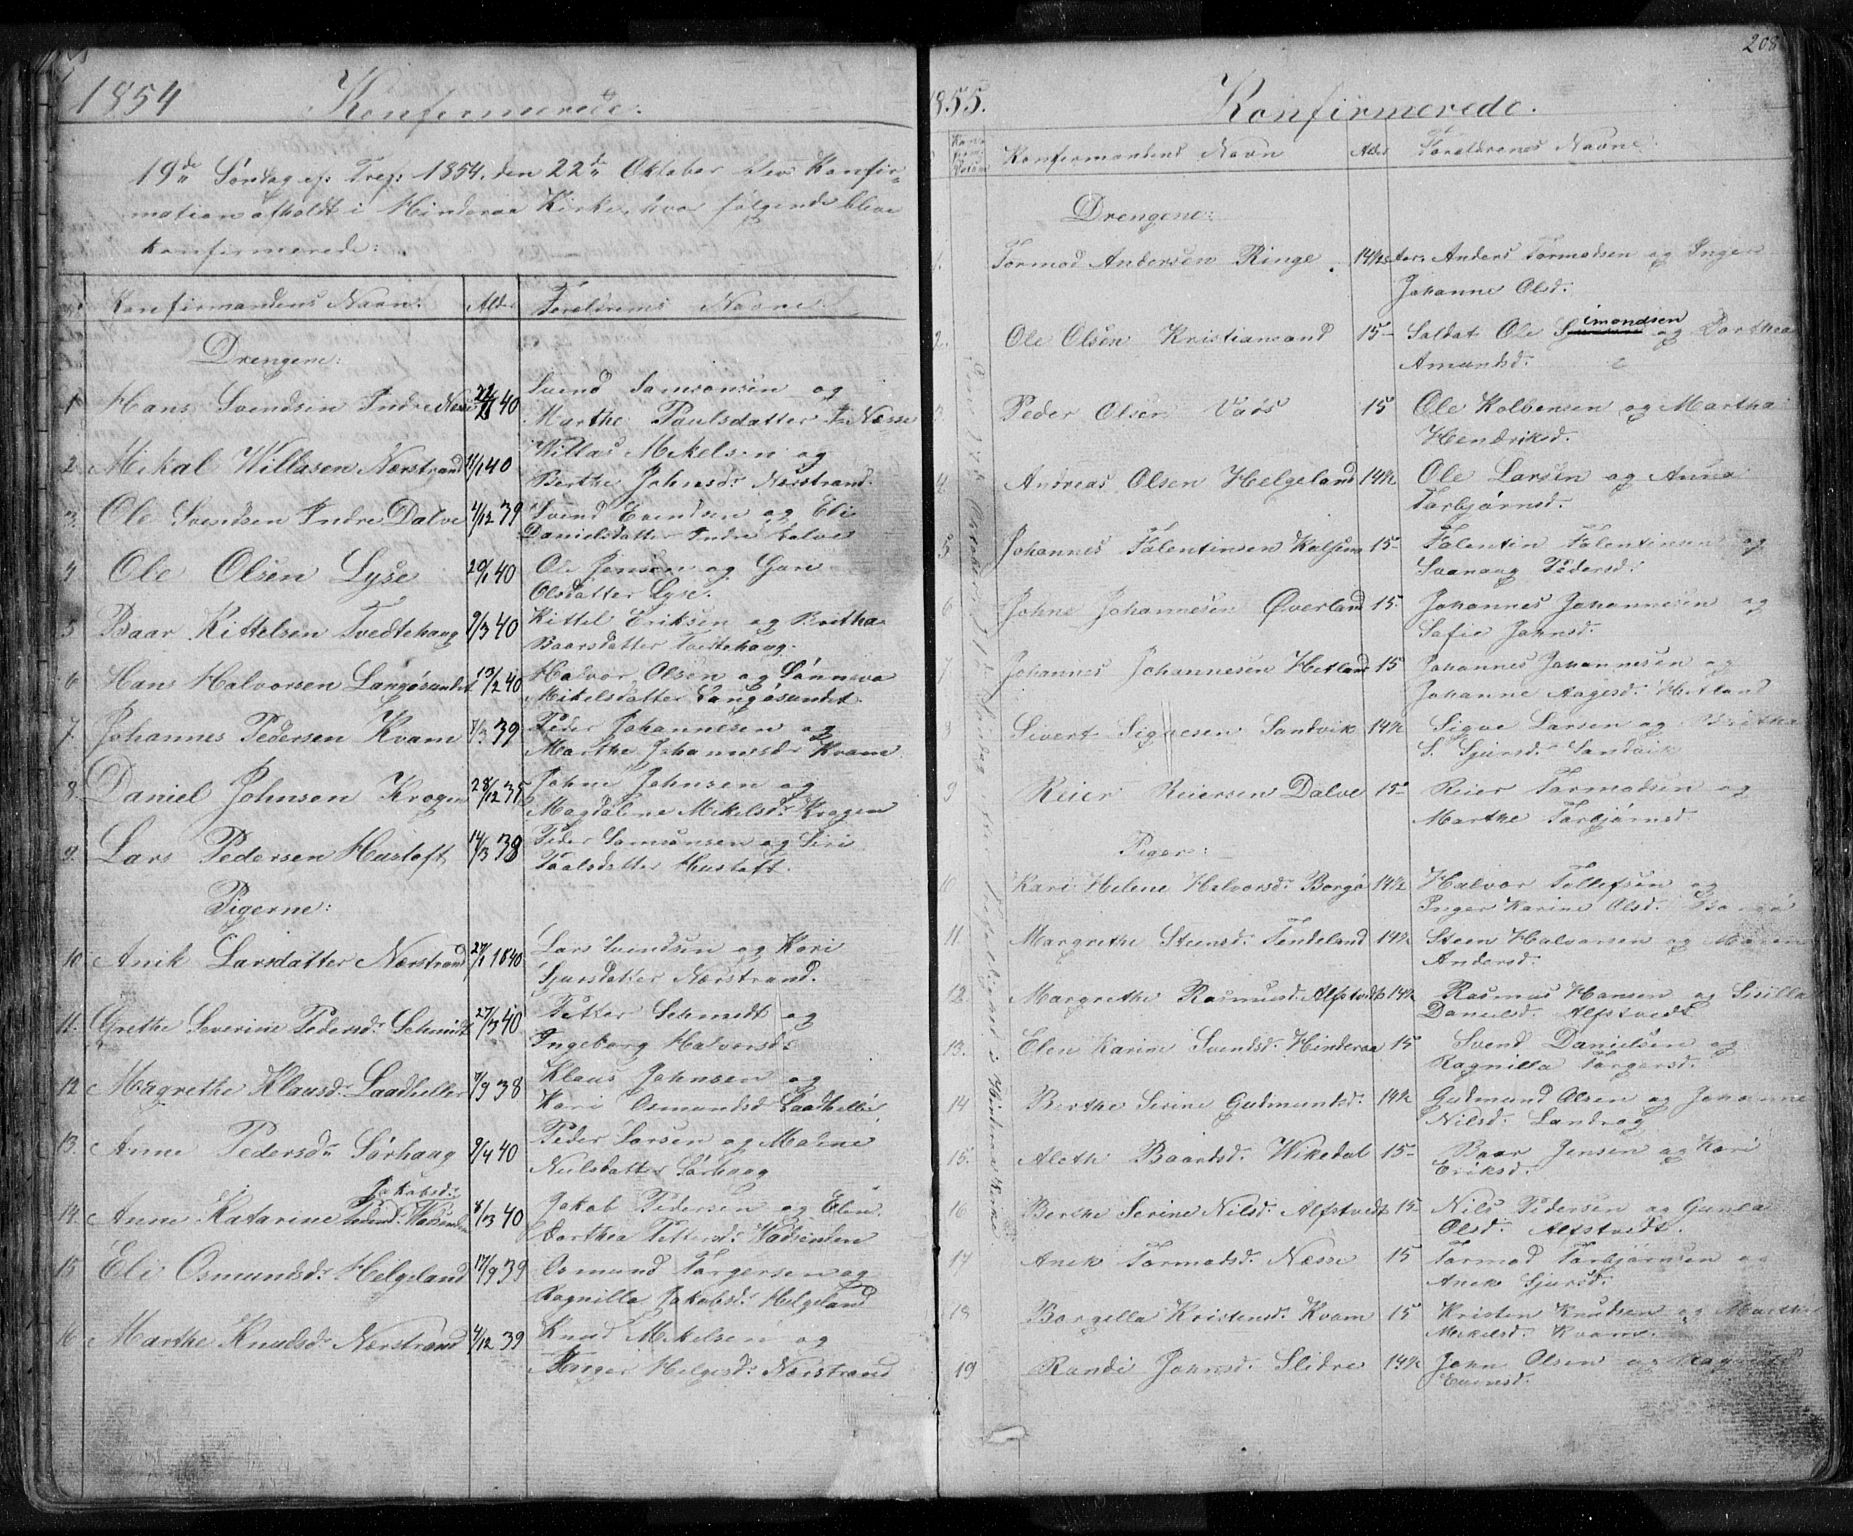 1854
Konfirmerede.
19de Søndag ef. Tref: 1854, den 22de Oktober blev Konfir-
mation afholdt i Hinderaa Kirke, hvor følgende bleve
konfirmerede:
Konfirmandens Navn: Alder Foreldrenes Navne:
Drengene:
1 Hans Svendsen Indre Næsse 40 Svend Samsonsen og
Marthe Paulsdatter I. Næsse
2 Mikal Willasen Nærstrand 40 Willas Mikelsen og
Berthe Johnsdr Nærstrand.
3. Ole Svendsen Indre Dalve 4/12 39 Svend Evendsen og Eli
Danielsdatter Indre Dalve
4 Ole Olsen Lyse 20/1 40 Ole Jensen og Guri
Olsdatter Lyse.
5 Baar Kittelsen Tvedtehaug 9/3 40 Kittel Eriksen og Britha
Baarsdatter Tvedtehaug.
6 Hans Halvorsen Langøsundet 13/2 40 Halvor Olsen og Sønneva
Mikelsdatter Langøsundet.
7. Johannes Pedersen Kvam 39 Peder Johannesen og
Marthe Johannesdr Kvam
8. Daniel Johnsen Krogen 28/12 35 Johne Johnsen og
Magdalene Mikelsdr Krogen
9. Lars Pedersen Hustoft 14/3 38 Peder Samsonsen og Siri
Paalsdatter Hustoft.
Pigerne:
10 Anik Larsdatter Nærstrand 27/1 1840 Lars Svendsen og Kari
Sjursdatter Nærstrand.
11. Grethe Severine Pedersdr Schmidt 27/3 40 Petter Schmidt og
Ingeborg Halvorsd:
12 Magrethe Klausd: Laadheller 38 Klaus Johnsen og
Kari Osmundsd Laadheller
13. Anne Pedersdr Sørhaug 9/4 40 Peder Larsen og Malene
Neilsdatter Sørhaug
Jakobsd:
14. Anne Katarine 40 Jakob Pedersen og Elen
Dorthea Pettersdr
15 Eli Osmundsdr Helgeland 17/9 39 Osmund Torgersen og
Ragnilla Jakobsd: Helgeland
16 Marthe Knudsdr Nærstrand 4/12 39 Knud Mikelsen og
Inger Helgesd: Nærstrand
208
1855.
Konfirmerede.
Konfirmandens Navn Alder Foreldrenes Navne:
Drengene:
1. Tormod Andersen Ringe. 14½ Anders Tormodsen og Inger
Johanne Olsd.
2. Ole Olsen Kristiansand 15 Soldat Ole Simondsen og Dorthea
Amundsd.
3. Peder Olsen Vaös 15 Ole Kolbensen og Martha
Hendriksd.
4 Andreas Olsen Helgeland 14½ Ole Larsen og Anna
Torbjørnsd.
5 Johannes Falentinsen 15 Falentin Falentinsen og
Svanaug Pedersd:
6 Johne Johannesen Øverland 15. Johannes Johannesen og
Sofie Johnsd.
7 Johannes Johannesen Hetland 15 Johannes Johannesen og
Johanne Aagesd. Hetland
8 Sivert Signesen Sandvik 14½ Sigve Larsen og Britha
S. Sjursd: Sandvik
9 Reier Reiersen Dalve 15 Reier Tormodsen og
Marthe Torbjørnsd
Piger:
10 Kari Helene Halvorsdr Borgø 14½ Halvor Tollefsen og
Inger Karine Olsd. Borgø
11. Margrethe Steensd. Tendeland 14½ Steen Halvorsen og Maren
Andersd:
12. Margrethe Rasmusd. Alfstvedt 14½ Rasmus Hansen og Sisilla
Danielsd. Alfstvedt
13. Elen Karine Svendsd. Hinderaa 15 Svend Danielsen og
Ragnilla Torgersd.
14 Berthe Serine Gudmundsd. 14½ Gudmund Olsen og Johanne
Nilsd:
15. Aleth Baardsd. Wikedal 15 Baar Jensen og Kari
Eriksd:
16 Berthe Serine Nilsd. Alfstvedt 15 Nils Pedersen og Gunla
Olsd. Alfstvedt.
17 Anek Tormodsd. Næsse 15 Tormod Torbjørnsen og
Anek Sjursd.
18 Borgella Kristensd. Kvam 15 Kristen Knudsen og Marthe
Mikelsd. Kvam.
19 Randi Johnsd. Slidre 14½ John Olsen og